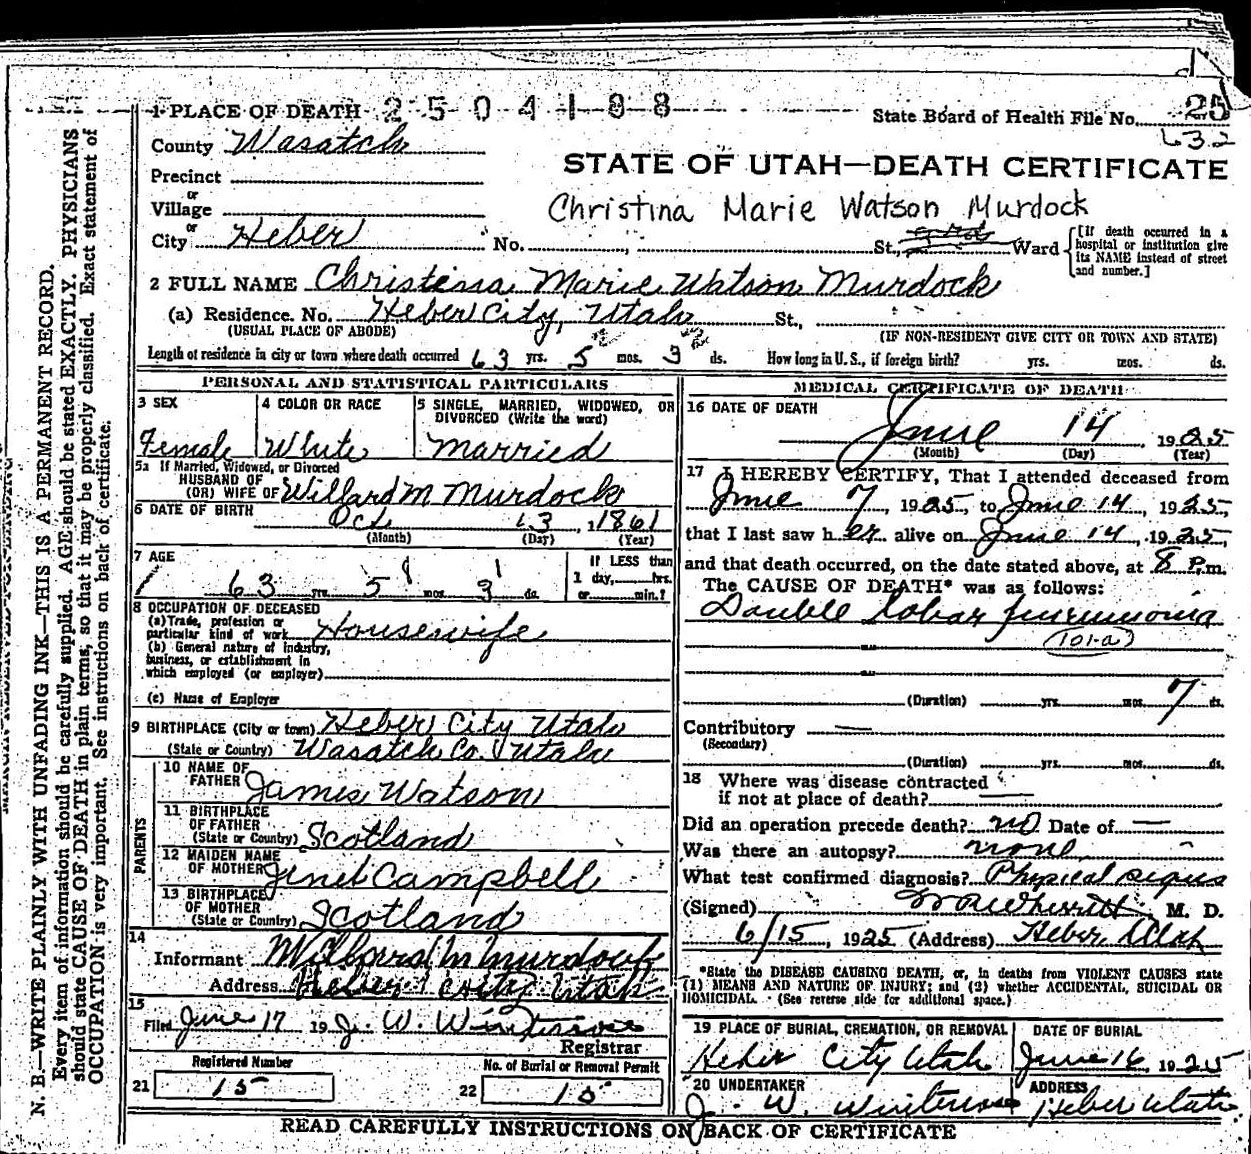 1 PLACE OF DEATH 2504188
State Board of Health File No. 25
632
County Wasatch
STATE OF UTAH—DEATH CERTIFICATE
Precinct
or
Village
Christina Marie Watson Murdock
or
City Heber No. St., Ward
[If death occurred in a hospital or institution give its NAME instead of street and number.]
2 FULL NAME Christina Marie Watson Murdock
(a) Residence. No. Heber City, Utah St.,
(USUAL PLACE OF ABODE) (IF NON-RESIDENT GIVE CITY OR TOWN AND STATE)
Length of residence in city or town where death occurred 63 yrs. 5 mos. 3 ds. How long in U.S., if foreign birth? yrs. mos. ds.
PERSONAL AND STATISTICAL PARTICULARS
3 SEX
Female
4 COLOR OR RACE
White
5 SINGLE, MARRIED, WIDOWED, OR
DIVORCED (Write the word)
Married
5a If Married, Widowed, or Divorced
HUSBAND OF
(OR) WIFE OF Willard M Murdock
6 DATE OF BIRTH Oct 13, 1861
(Month) (Day) (Year)
7 AGE
63 yrs. 5 mos. 3 ds.
If LESS than
1 day, hrs.
or min.?
8 OCCUPATION OF DECEASED
(a) Trade, profession or
particular kind of work Housewife
(b) General nature of industry,
business, or establishment in
which employed (or employer)
(c) Name of Employer
9 BIRTHPLACE (City or town) Heber City Utah
(State or Country) Wasatch Co. Utah
PARENTS
10 NAME OF
FATHER James Watson
11 BIRTHPLACE
OF FATHER
(State or Country) Scotland
12 MAIDEN NAME
OF MOTHER Jenet Campbell
13 BIRTHPLACE
OF MOTHER
(State or Country) Scotland
14
Informant Willard M Murdock
Address Heber City Utah
15
Filed June 17 19 J. W. Winterose
Registrar
Registered Number
21 15
No. of Burial or Removal Permit
22 15
MEDICAL CERTIFICATE OF DEATH
16 DATE OF DEATH
June 14, 1925
(Month) (Day) (Year)
17 I HEREBY CERTIFY, That I attended deceased from
June 7, 1925, to June 14, 1925,
that I last saw her alive on June 14, 1925,
and that death occurred, on the date stated above, at 8 P.m.
The CAUSE OF DEATH* was as follows:
Double Lobar pneumonia
(101-a)
(Duration) yrs. mos. 7 ds.
Contributory
(Secondary)
(Duration) yrs. mos. ds.
18 Where was disease contracted
if not at place of death?
Did an operation precede death? no Date of —
Was there an autopsy? none
What test confirmed diagnosis? Physical signs
(Signed) Wherritt M. D.
6/15, 1925 (Address) Heber, Utah
*State the DISEASE CAUSING DEATH, or, in deaths from VIOLENT CAUSES state
(1) MEANS AND NATURE OF INJURY; and (2) whether ACCIDENTAL, SUICIDAL OR
HOMICIDAL. (See reverse side for additional space.)
19 PLACE OF BURIAL, CREMATION, OR REMOVAL
Heber City Utah
DATE OF BURIAL
June 16, 1925
20 UNDERTAKER
J. W. Winterose
ADDRESS
Heber Utah
READ CAREFULLY INSTRUCTIONS ON BACK OF CERTIFICATE
N. B.—WRITE PLAINLY WITH UNFADING INK—THIS IS A PERMANENT RECORD.
Every item of information should be carefully supplied. AGE should be stated EXACTLY. PHYSICIANS
should state CAUSE OF DEATH in plain terms, so that it may be properly classified. Exact statement of
OCCUPATION is very important. See instructions on back of certificate.